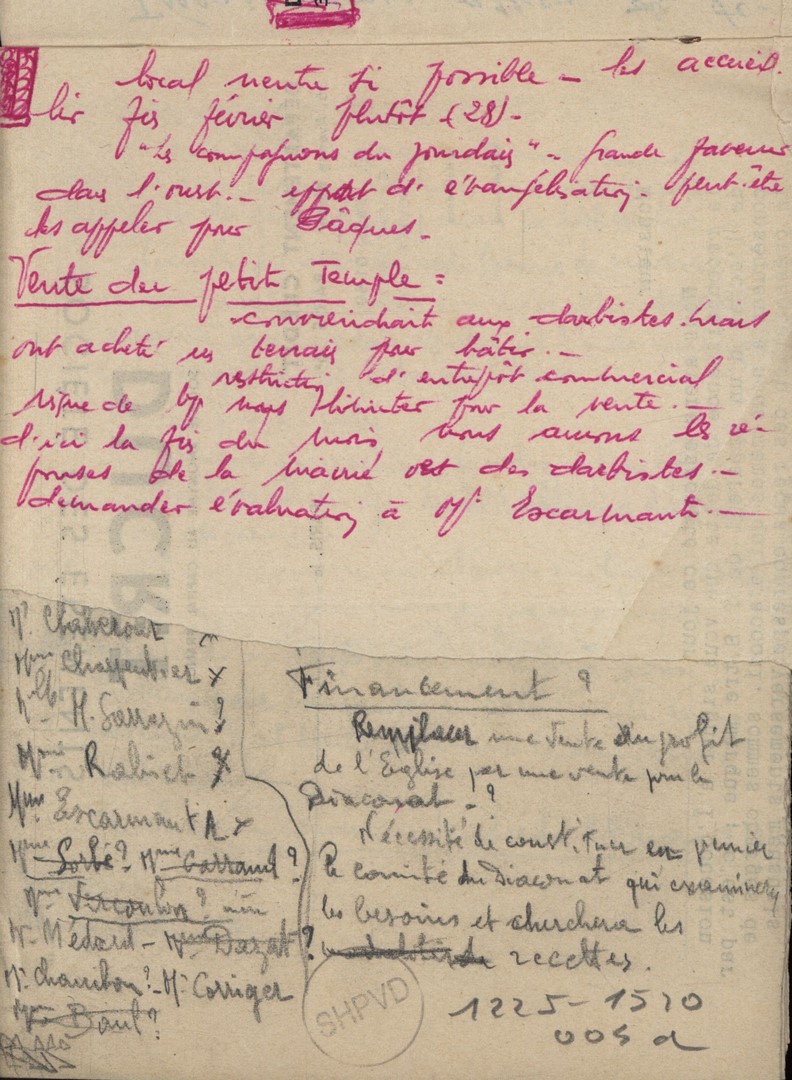 local neutre si possible - les accueil.
lir fin février plutôt (28) -
"Les compagnons du Jourdain" - grande faveur
dans l'ouest. - effort d'évangélisation - peut-être
les appeler pour Pâques -
Vente du petit Temple =
- conviendrait aux darbistes. mais
ont acheté un terrain pour bâtir. -
restriction d'entrepôt commercial
risque de pour la vente. -
d'ici la fin du mois nous aurons les ré-
ponses de la mairie et des darbistes. -
demander évaluation à Mr Escarmant. -
Mr.
Mme Charpentier x
Mlle H. Sarrazin ?
Mme Rabier x
Mme Escarmant A x
Mme Sorbé ? - Mme Garraud ?
Mme ?
Mr Médard - Mme Dazat ?
Mr Chambon ? - Mr Corriger
Mme Baul ?
Financement ?
Remplacer une vente au profit
de l'Eglise par une vente pour le
Diaconat - ?
Nécessité de constituer en premier
le comité du Diaconat qui examinera
les besoins et cherchera les
recettes.
SHPVD
1225-1570
005 d